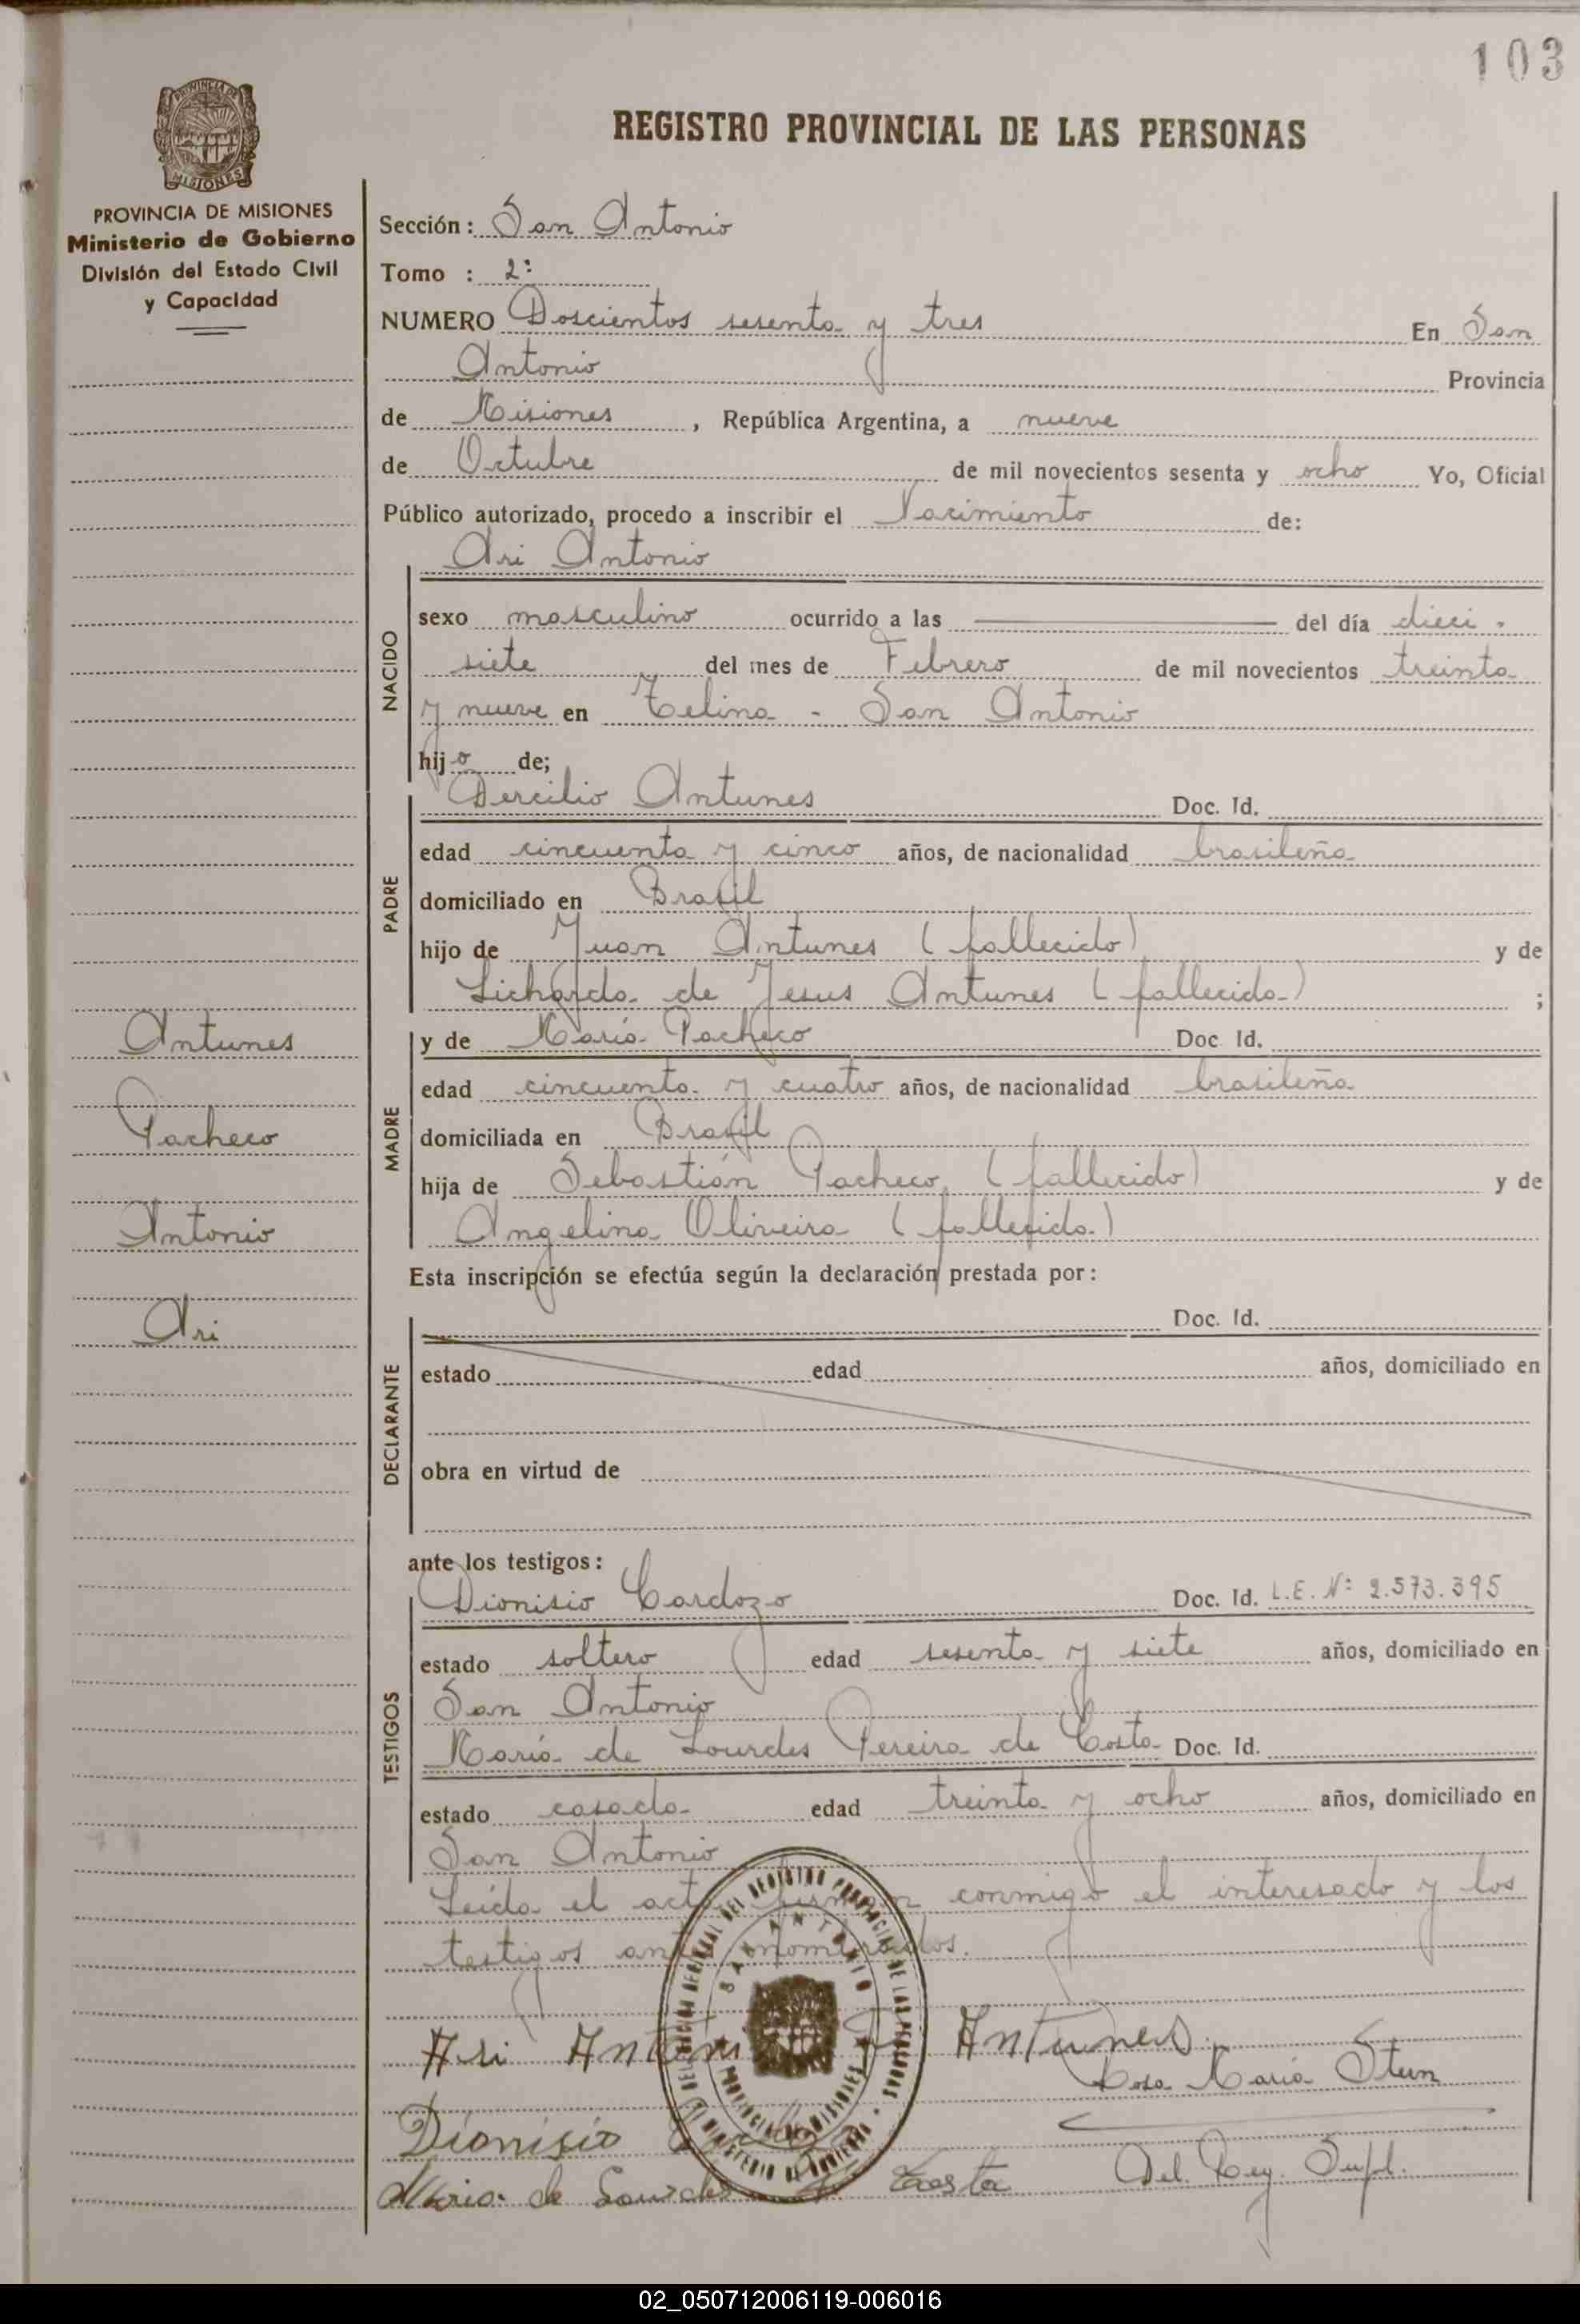 103
PROVINCIA DE MISIONES
MISIONES
PROVINCIA DE MISIONES
Ministerio de Gobierno
División del Estado Civil
y Capacidad
REGISTRO PROVINCIAL DE LAS PERSONAS
Sección: San Antonio
Tomo : 2º
NUMERO Doscientos sesenta y tres En San
Antonio Provincia
de Misiones, República Argentina, a nueve
de Octubre de mil novecientos sesenta y ocho Yo, Oficial
Público autorizado, procedo a inscribir el Nacimiento de:
Ari Antonio
NACIDO
sexo masculino ocurrido a las del día dieci-
siete del mes de Febrero de mil novecientos treinta
y nueve en Celina - San Antonio
hijo de;
PADRE
Dercilio Antunes Doc. Id.
edad cincuenta y cinco años, de nacionalidad brasileña
domiciliado en Brasil
hijo de Juan Antunes (fallecido) y de
de Jesus Antunes (fallecida) ;
Antunes
Pacheco
Antonio
Ari
MADRE
y de María Pacheco Doc Id.
edad cincuenta y cuatro años, de nacionalidad brasileña
domiciliada en Brasil
hija de Sebastián Pacheco (fallecido) y de
Angelina Oliveira (fallecida)
Esta inscripción se efectúa según la declaración prestada por:
DECLARANTE
Doc. Id.
estado edad años, domiciliado en
obra en virtud de
ante los testigos:
TESTIGOS
Dionisio Cardozo Doc. Id. L.E. Nº 2.573.395
estado soltero edad sesenta y siete años, domiciliado en
San Antonio
María de Lourdes Pereira de Costa Doc. Id.
estado casada edad treinta y ocho años, domiciliado en
San Antonio
Leída el acta firman conmigo el interesado y los
testigos antes nombrados.
DELEGACION SECCIONAL DEL REGISTRO PROVINCIAL DE LAS PERSONAS
SAN ANTONIO
PROVINCIA DE MISIONES
MINISTERIO DE GOBIERNO
Ari Antonio Antunes
Rosa María Stem
Dionisio
Maria de Lourdes P. Costa
Del. Reg. Supl.
02_050712006119-006016